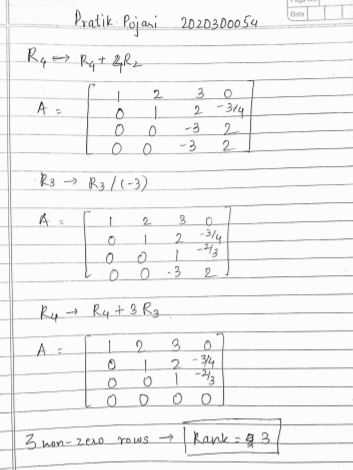 Pratik Pojari 2020300054
Date
R4 ↔ R4 + 4R2
A = [ 1 2 3 0
0 1 2 -3/4
0 0 -3 2
0 0 -3 2 ]
R3 → R3/(-3)
A = [ 1 2 3 0
0 1 2 -3/4
0 0 1 -2/3
0 0 -3 2 ]
R4 → R4 + 3R3
A = [ 1 2 3 0
0 1 2 -3/4
0 0 1 -2/3
0 0 0 0 ]
3 non-zero rows → Rank = 3